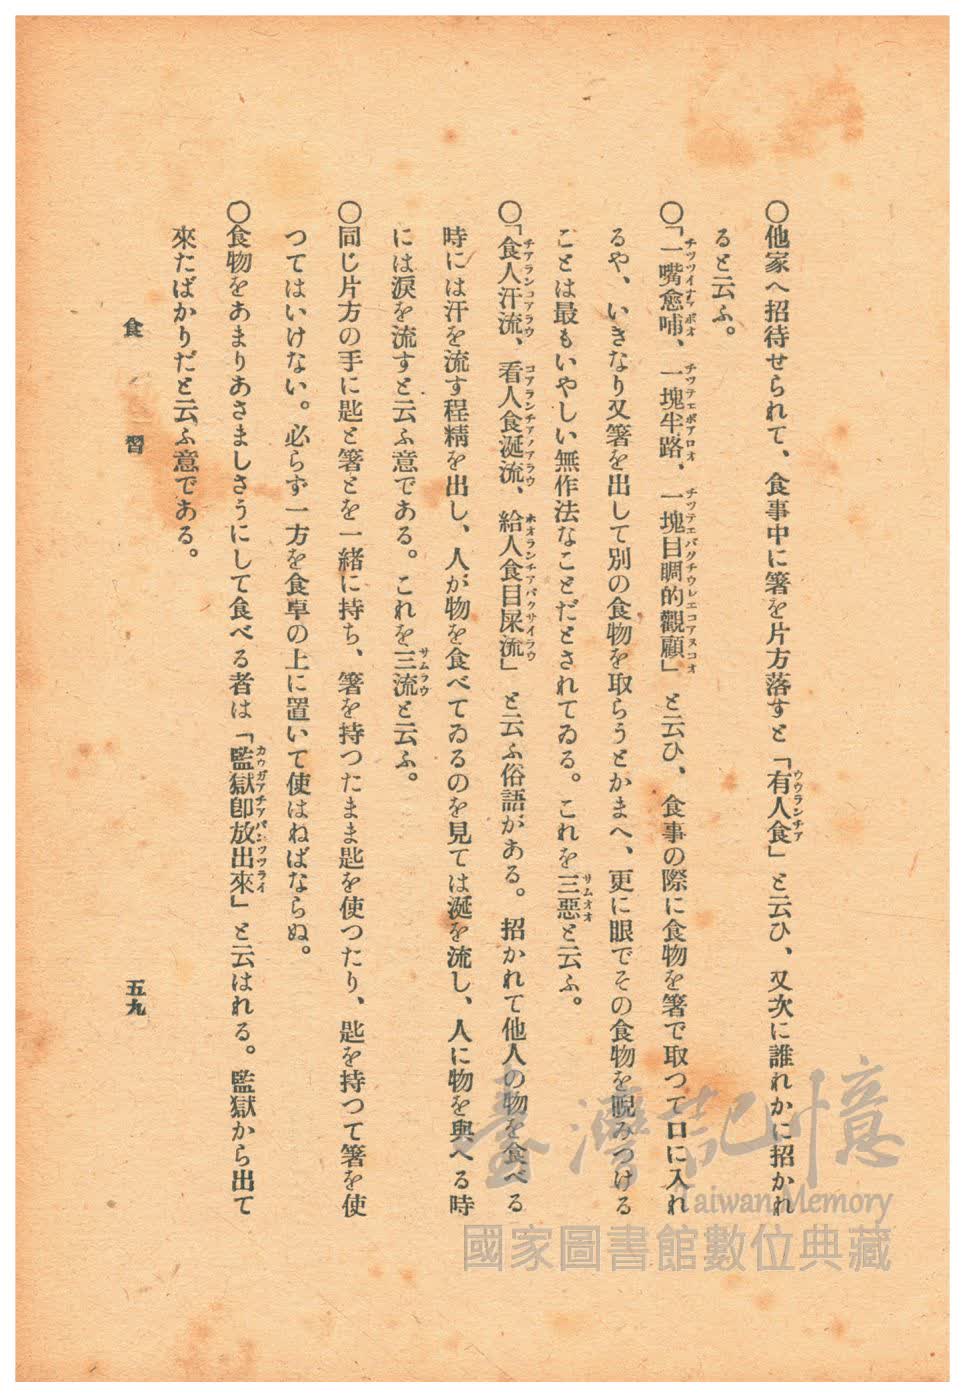 〇他家へ招待せられて、食事中に箸を片方落すと「有人食」と云ひ、又次に誰れかに招かれ
ると云ふ。
〇「一嘴愈哺、一塊半路、一塊目睭的觀顧」と云ひ、食事の際に食物を箸で取つて口に入れ
るや、いきなり又箸を出して別の食物を取らうとかまへ、更に眼でその食物を睨みつける
ことは最もいやしい無作法なことだとされてゐる。これを三惡と云ふ。
〇「食人汗流、看人食涎流、給人食目屎流」と云ふ俗語がある。招かれて他人の物を食べる
時には汗を流す程精を出し、人が物を食べてゐるのを見ては涎を流し、人に物を與へる時
には淚を流すと云ふ意である。これを三流と云ふ。
〇同じ片方の手に匙と箸とを一緒に持ち、箸を持つたまま匙を使つたり、匙を持つて箸を使
つてはいけない。必らず一方を食卓の上に置いて使はねばならぬ。
〇食物をあまりあさましさうにして食べる者は「監獄卽放出來」と云はれる。監獄から出て
來たばかりだと云ふ意である。
食 習
五九
臺灣記憶
Taiwan Memory
國家圖書館數位典藏